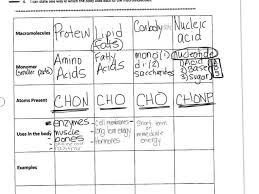 6. I can state one way in which the body uses each of the macromolecules.
Macromolecules
Protein
Lipid
(fats)
Carbohy
Nucleic
acid
Monomer
(smaller parts)
Amino
Acids
Fatty
Acids
mono(1)
di (2)
saccharides
nucleotide
1) Acid
2) Base
3) Sugar
Atoms Present
CHON
CHO
CHO
CHONP
Uses in the body
enzymes
muscle
bones
cell membranes
long term energy
hormones
Short term
or
immediate
energy
Examples